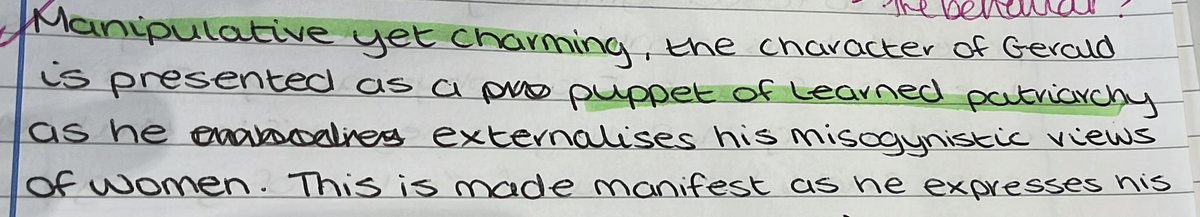 the behaviour?
Manipulative yet charming, the character of Gerald
is presented as a puppet of learned patriarchy
as he externalises his misogynistic views
of women. This is made manifest as he expresses his